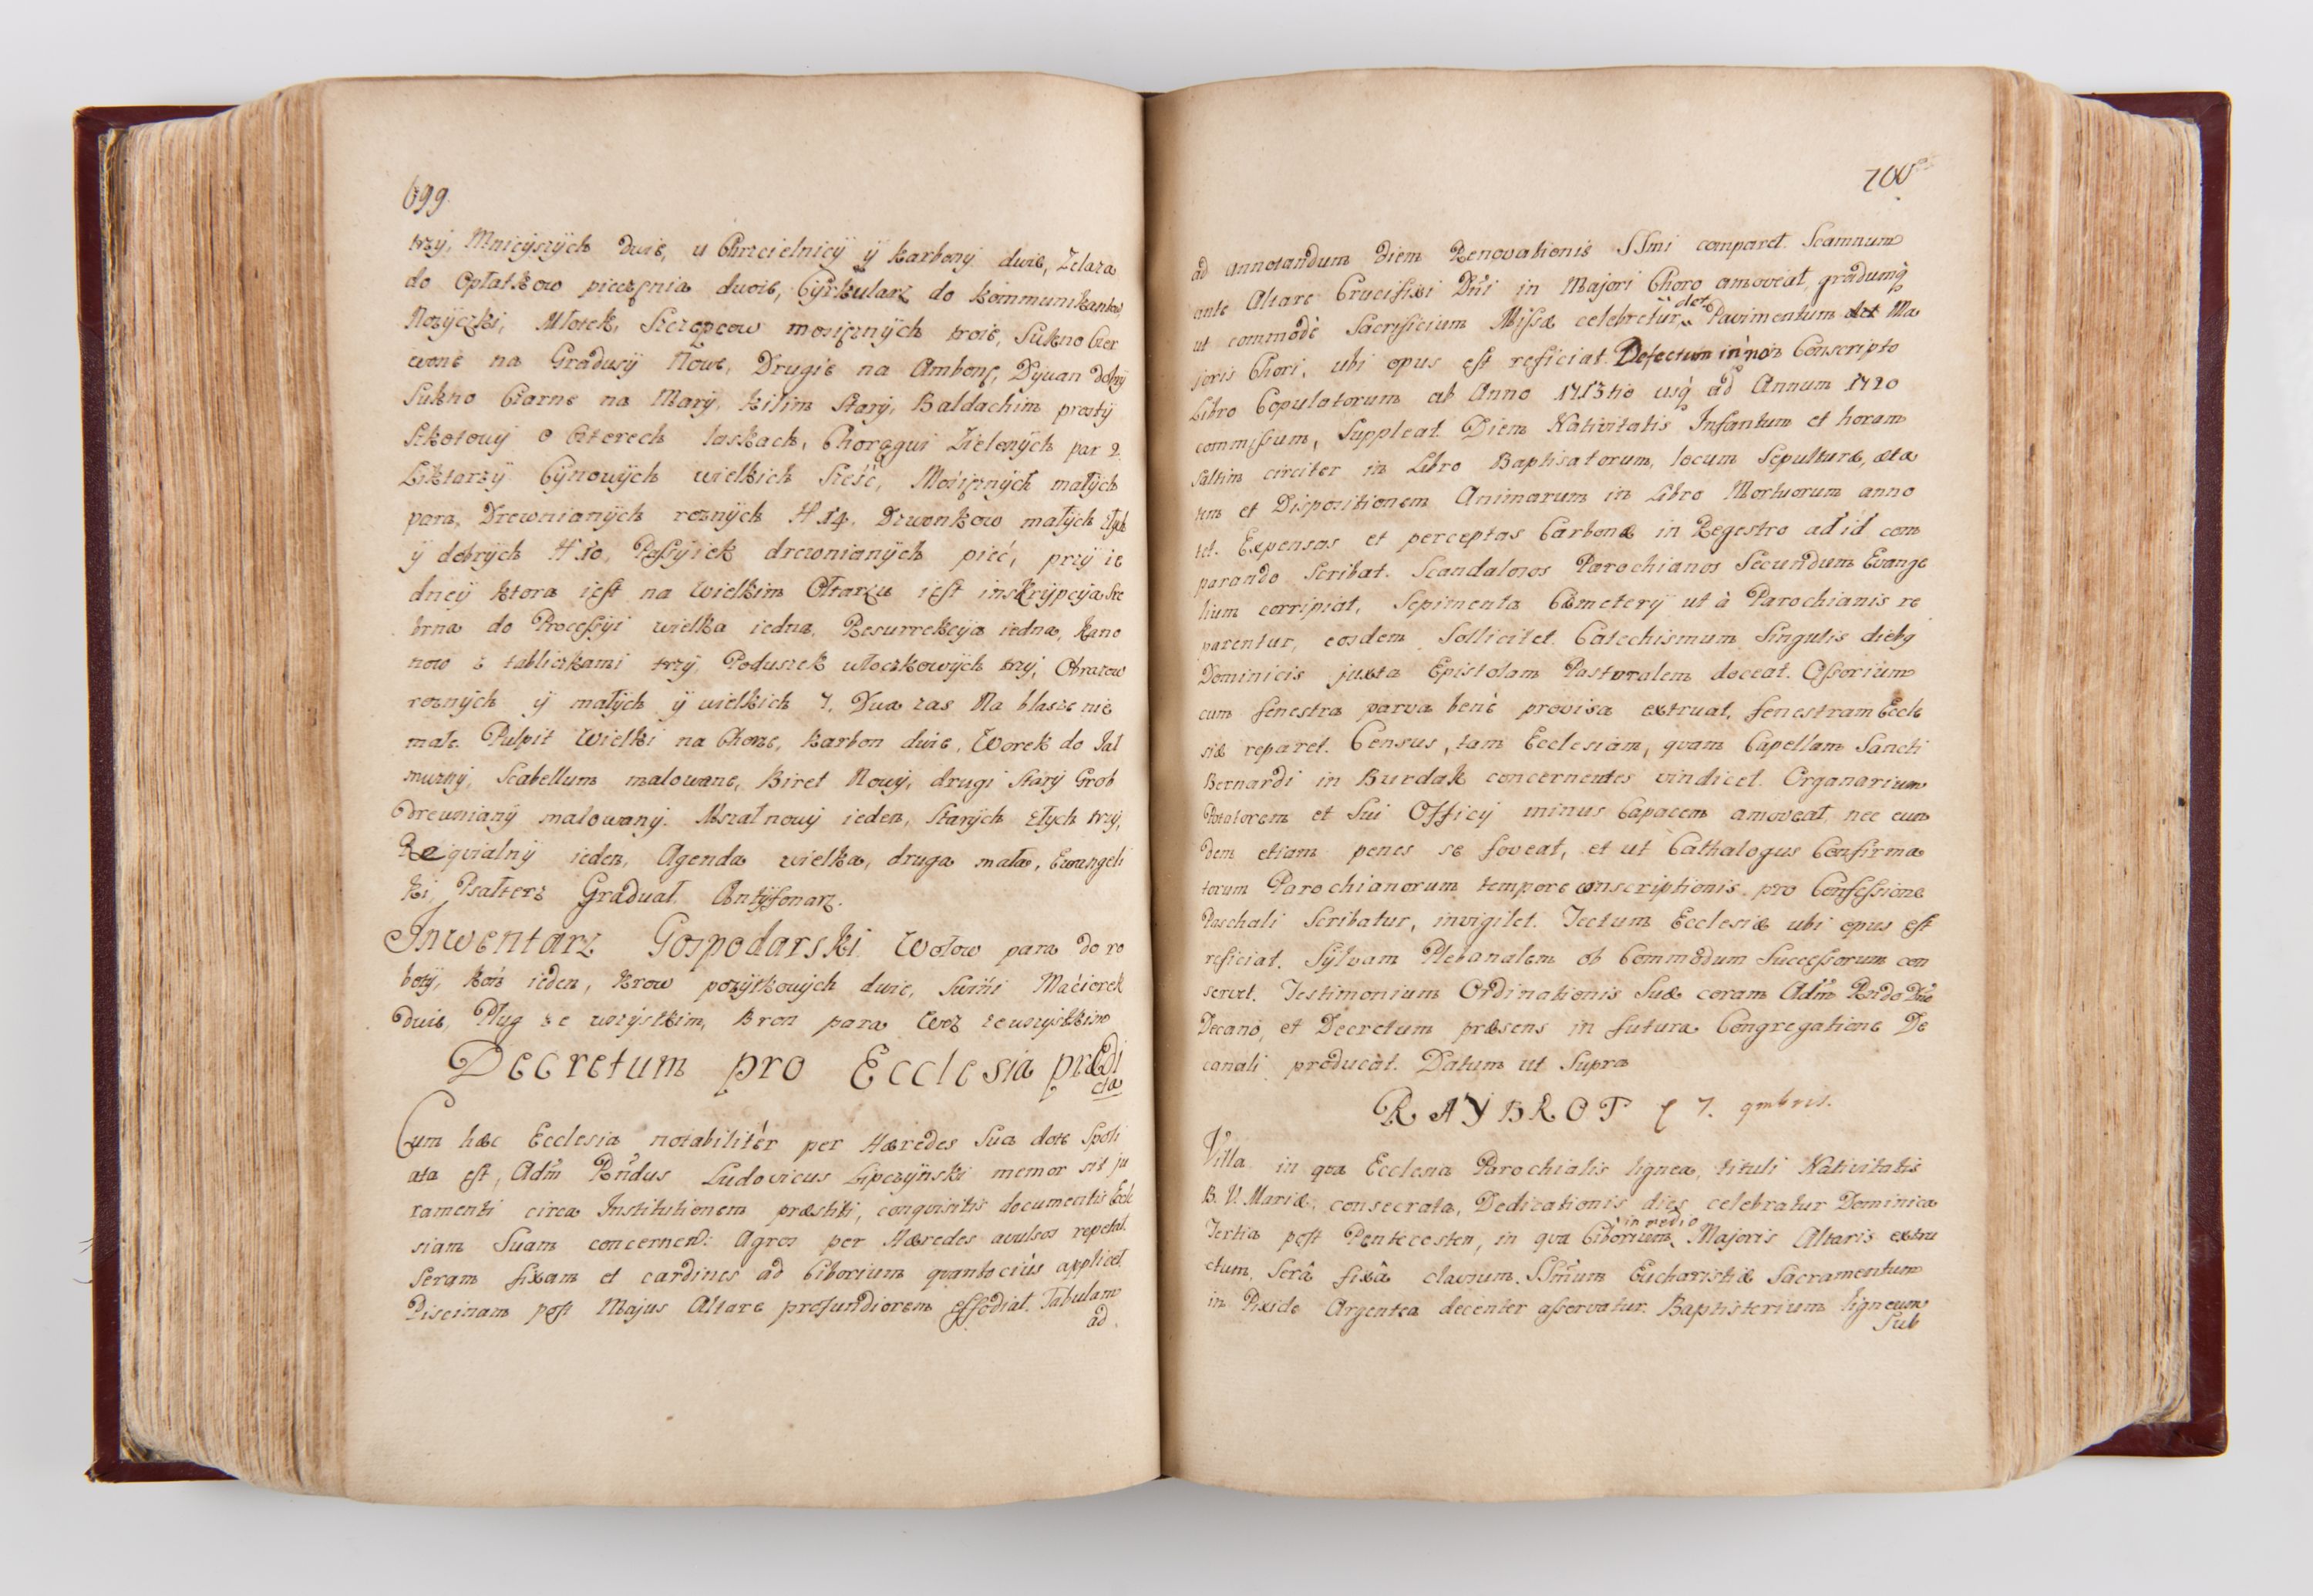 699.
trzy, Mnieyszych dwie, u Chrzcielnicy y karbony dwie, Zelaza
do Opłatkow pieczenia dwoie, Cyrkularz do kommunikantow
Nozyczki, Młotek, Szczypcow mosięznych troie, Sukno Czer
wone na Gradusy Nowe, Drugie na Ambonę, Dywan dolny
Sukno Czarne na Mary, kilim Stary, Baldachim prosty
Szkotowy o Czterech laskach, Choręgwi Zielonych par 2.
Liktarzy Cynowych wielkich Sześć, Mosięznych małych
para, Drewnianych roznych N 14. Dzwonkow małych złych
y dobrych N 10, Passyiek drewnianych pięć, przy ie
dney ktora iest na Wielkim Ołtarzu iest inskrypcya Sre
brna do Processyi wielka iedna, Resurrekcya iedna, Kano
now z tabliczkami trzy, Poduszek włoczkowych trzy, Obrazow
roznych y małych y wielkich 7. Dwa zas Na blasze nie
małe. Pulpit Wielki na Chorze, karbon dwie, Worek do Jał
muzny, Scabellum malowane, Biret Nowy, drugi Stary Grob
Drewniany malowany. Mszał nowy ieden, Starych złych trzy,
Reqvialny ieden, Agenda wielka, druga mała, Ewangeli
ki, Psałterz Graduał Antyfonarz.
Inwentarz Gospodarski Wołow para do ro
boty, koń ieden, krow pozytkowych dwie, Swini Maciorek
Dwie, Pług ze wszystkim, Bron para Woz ze wszystkim
Decretum pro Ecclesia prædi
cta
Cum hæc Ecclesia notabilitér per Hæredes Sua dote Spoli
ata est, Adm Rndus Ludovicus Lipczynski memor sit ju
ramenti circa Institutionem præstiti, conquisitis documentis Eccle
siam Suam concernen: Agros per Hæredes avulsos repetat.
Seram fixam et cardines ad Ciborium quanto ciús applicet.
Piscinam post Majus Altare profundiorem effodiat. Tabulam
ad.
700
ad annotandum diem Renovationis SSmi comparet. Scamnum
ante Altare Crucifixi Dni in Majori Choro amoveat, gradumq
ut commodè Sacrificium Missæ celebretur, det Pavimentum Ma
joris Chori, ubi opus est reficiat. Defectum in non Conscripto
Libro Copulatorum ab Anno 1713tio usq ad Annum 1720
commissum, Suppleat. Diem Nativitatis Infantum et horam
saltim circiter in Libro Baptisatorum, locum Sepulturæ, æta
tem et Dispositionem Animarum in Libro Mortuorum anno
tet. Expensas et perceptas Carbonæ in Regestro ad id com
parando Scribat. Scandalosos Parochianos Secundum Evange
lium corripiat, Sepimenta Cæmeterij ut à Parochianis re
parentur, eosdem Sollicitet. Catechismum Singulis diebq
Dominicis juxta Epistolam Pastoralem doceat. Ossorium
cum fenestra parva benè provisa extruat, fenestram Eccle
siæ reparet. Census, tam Ecclesiam, quam Capellam Sancti
Bernardi in Burdak concernentes vindicet. Organarium
Potatorem et Sui Officij minus Capacem amoveat, nec eun
dem etiam penes se foveat, et ut Cathalogus Confirma
torum Parochianorum tempore conscriptionis pro Confessione
Paschali Scribatur, invigilet. Tectum Ecclesiæ ubi opus est
reficiat. Sylvam Plebanalem ob Commodum Successorum con
servet. Testimonium Ordinationis Suæ coram Adm Rndo Dno
Decano, et Decretum præsens in futura Congregatione De
canali producat. Datum ut Supra
RAYBROT 7. 9mbris.
Villa in qva Ecclesia Parochialis lignea, tituli Nativitatis
B. V. Mariæ, consecrata, Dedicationis dies celebratur Dominica
Tertia post Pentecosten, in qva Ciborium, in medio Majoris Altaris extru
ctum, Serâ fixâ clausum. SSmum Eucharistiæ Sacramentum
in Pixide Argentea decenter asservatur. Baptisterium ligneum
Sub